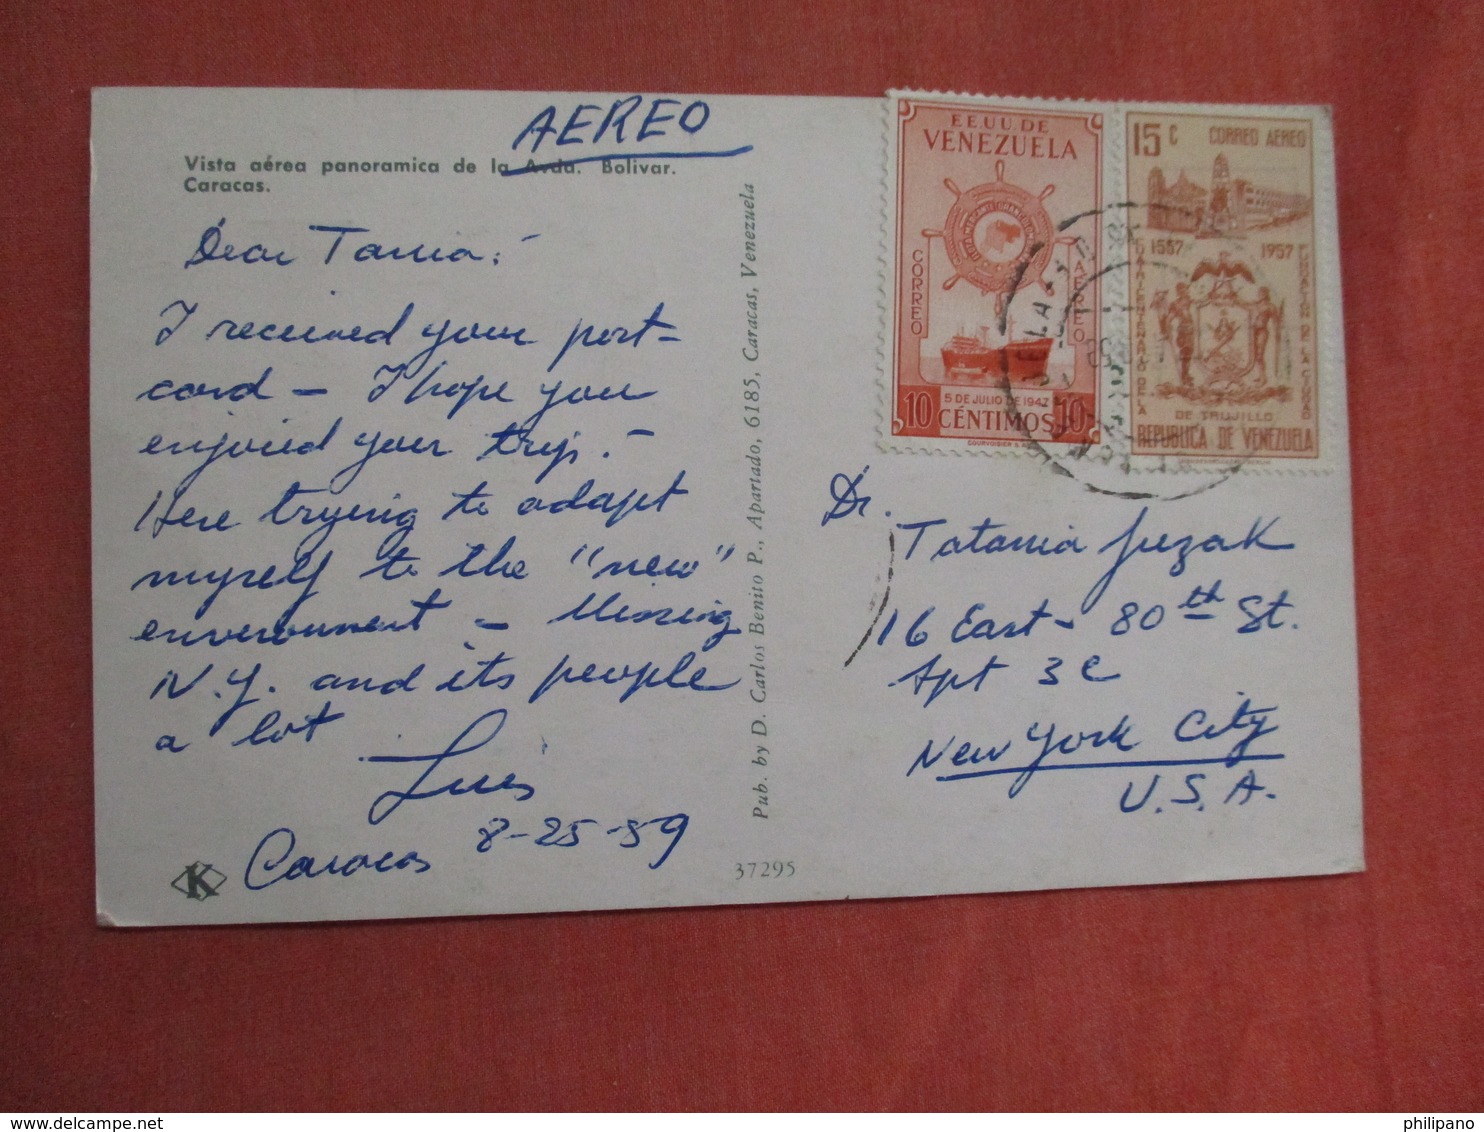 AEREO
Vista aérea panoramica de la Avda. Bolivar.
Caracas.
Dear Tania:-
I received your post-
card - I hope you
enjoied your trip. -
Here trying to adapt
myself to the "new"
environment - Missing
N.Y. and its people
a lot
Luis
Caracas 8-25-59
K
Pub. by D. Carlos Benito P., Apartado, 6185, Caracas, Venezuela
37295
EE.UU. DE
VENEZUELA
CORREO
AEREO
5 DE JULIO DE 1947
10 CÉNTIMOS 10
COURVOISIER S.A.
15 C CORREO AEREO
1557 1957
DE TRUJILLO
REPUBLICA DE VENEZUELA
Dr.
Tatania Juzak
16 East - 80th St.
Apt 3C
New York City
U.S.A.
delcampe.net
philipano